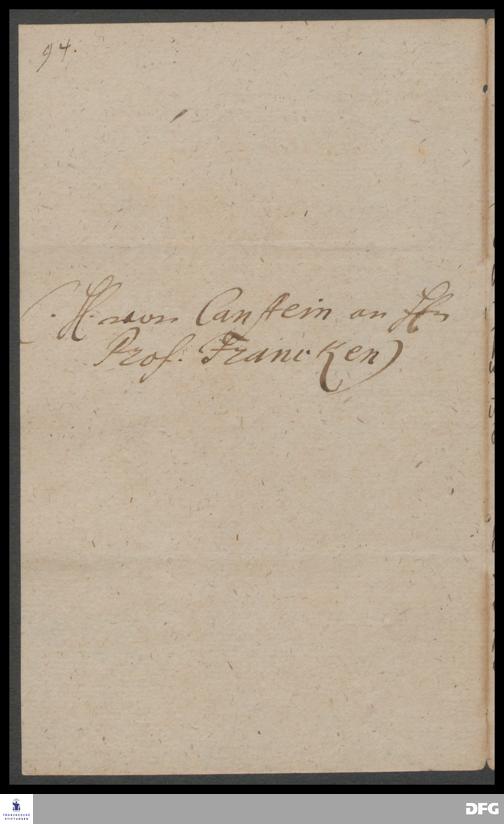 94.
(H. von Canstein an Hn
Prof. Francken)
FRANCKESCHE
STIFTUNGEN
DFG